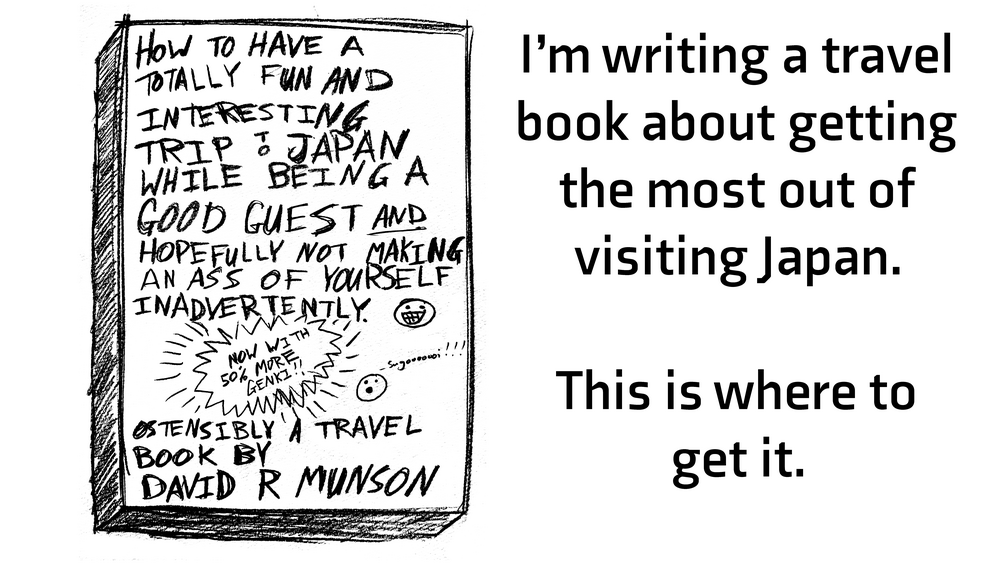 HOW TO HAVE A
TOTALLY FUN AND
INTERESTING
TRIP TO JAPAN
WHILE BEING A
GOOD GUEST AND
HOPEFULLY NOT MAKING
AN ASS OF YOURSELF
INADVERTENTLY.
NOW WITH
50% MORE
GENKI!!
-Sugoooooi!!!!
OSTENSIBLY A TRAVEL
BOOK BY
DAVID R MUNSON
I'm writing a travel
book about getting
the most out of
visiting Japan.
This is where to
get it.